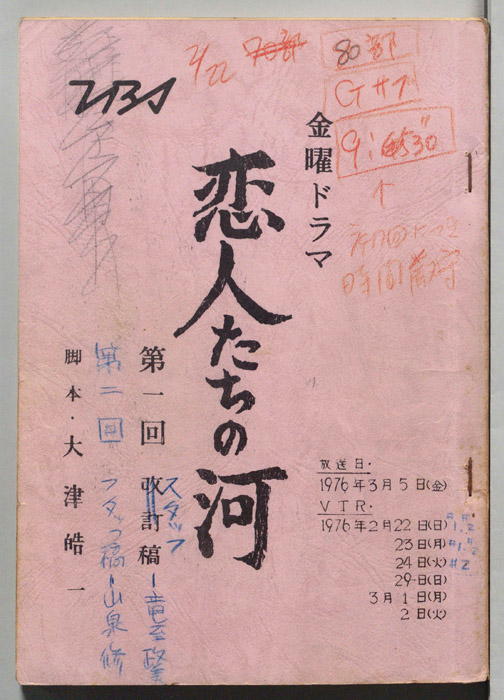 TBS
2/22 70部
80部
Gサブ
9:30"
↑
初回につき
時間厳守
金曜ドラマ
恋人たちの河
第一回 改訂稿
スタッフ
第二回 スタッフ稿
脚本・大津皓一
放送日・
1976年3月5日(金)
VTR・
1976年2月22日(日) #1.#2
23日(月) #1.#2
24日(火) #2
29日(日)
3月1日(月)
2日(火)